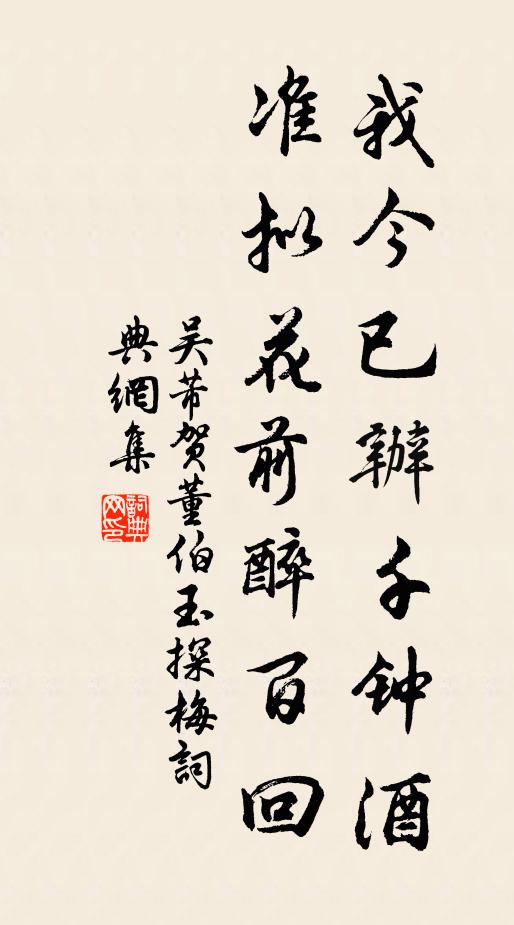 我今已辦千钟酒
准拟花前醉百回
吴芾贺董伯玉探梅詞
典網集
詞典网印